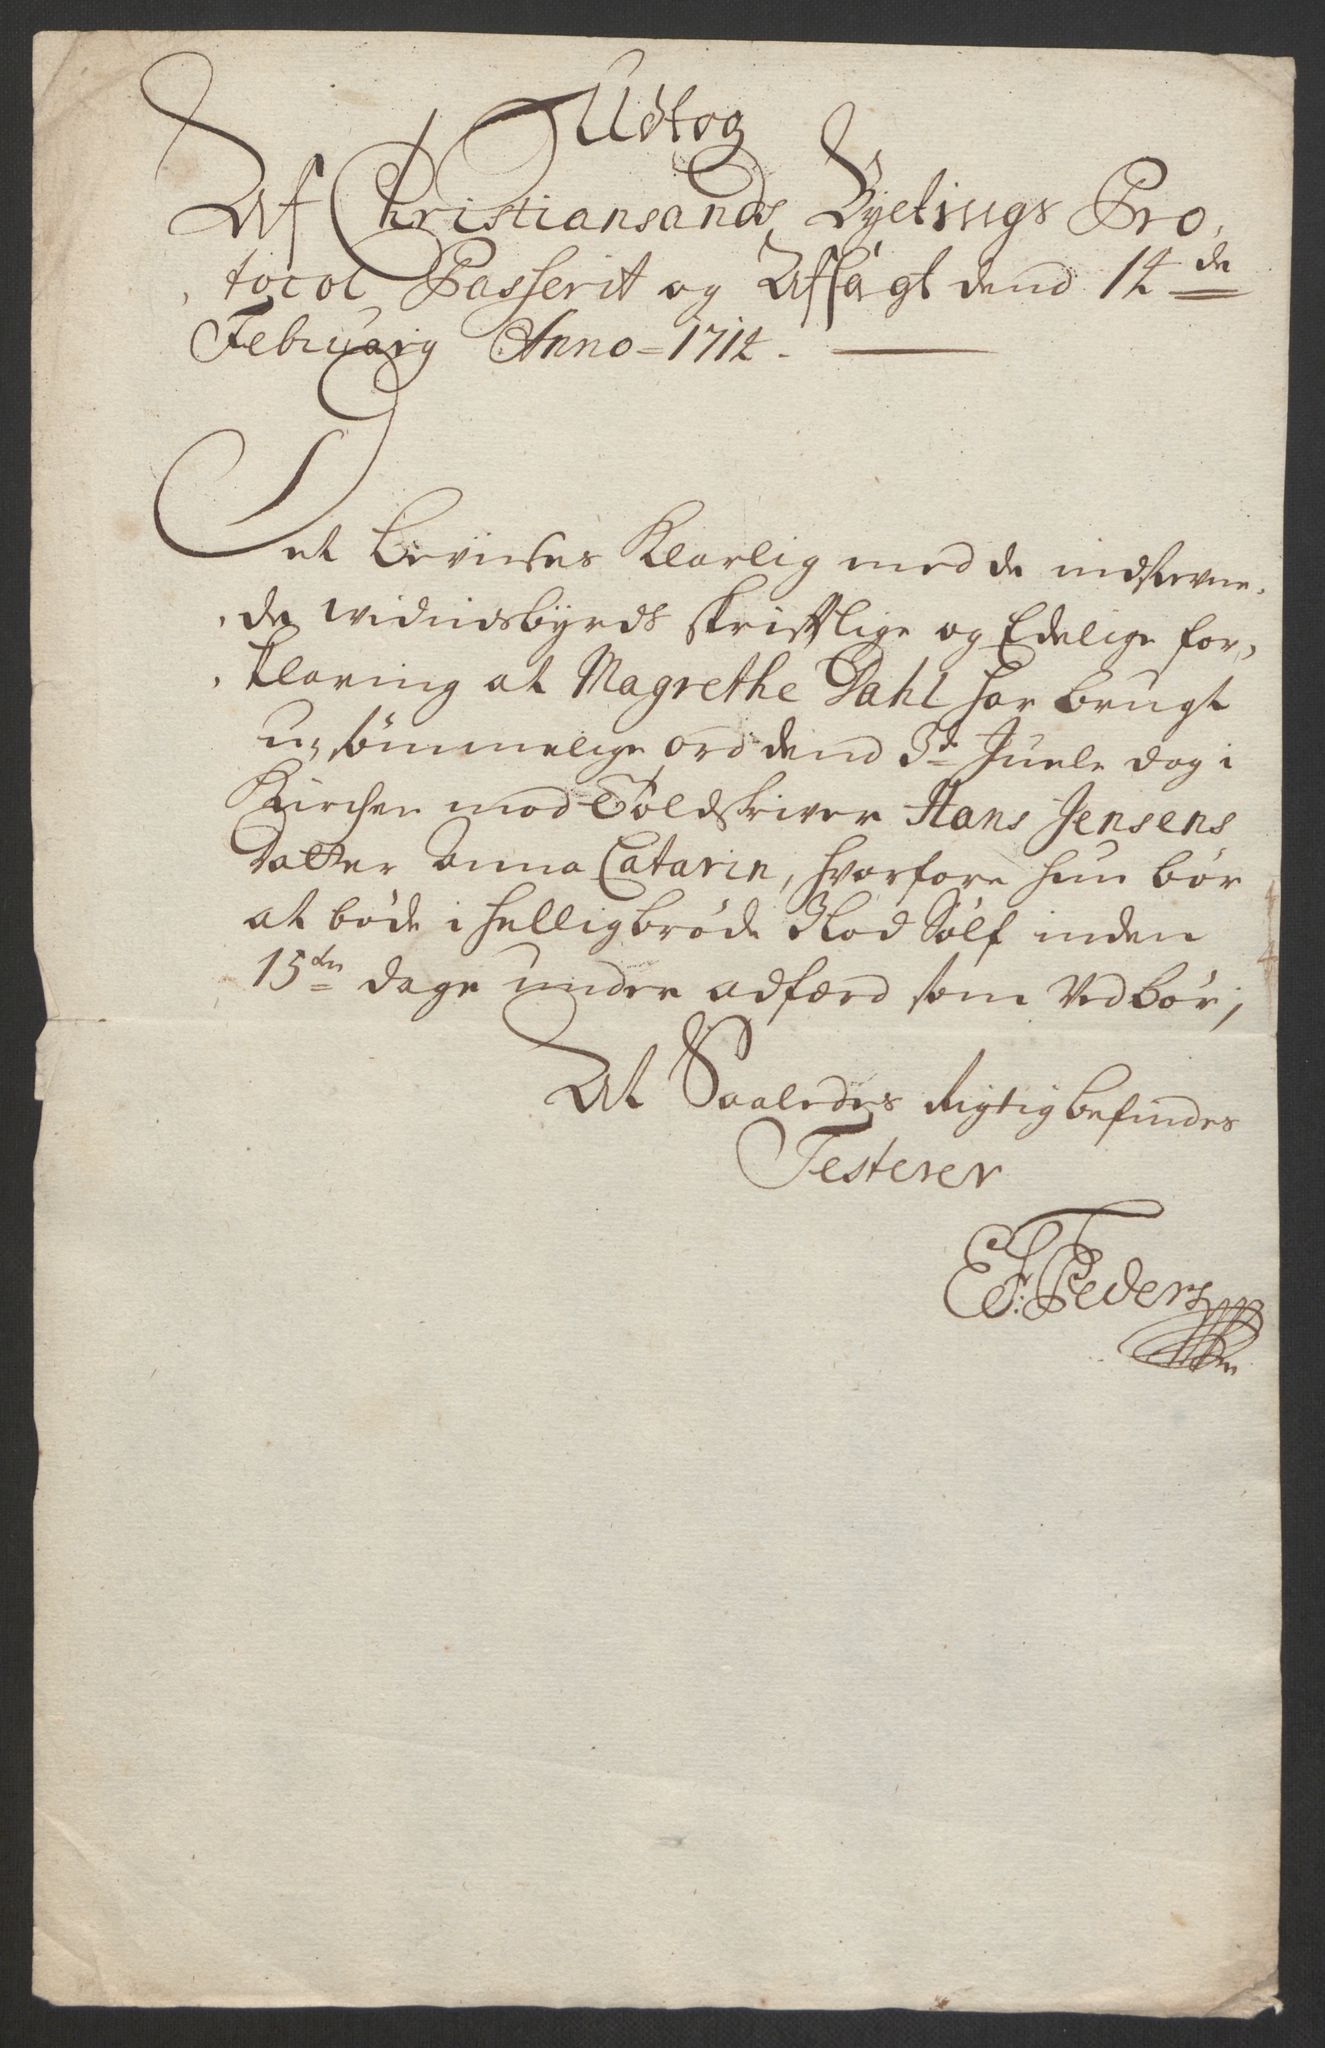 Udtog
Af Christiansands Byetings Pro,
, tocol Passerit og Afsagt dend 14 de
Februarij Anno = 1714 -
Det bevises Klarlig med de indstevne,
, de widnisbyrds skrifftlige og Edelige for,
, klaring at Magrethe Dahl har brugt
u,, sømmelige ord dend 3de Juele dag i
Kirchen mod Toldskriver Hans Jensens
datter Anna Catarin, hvorfore hun bør
at bøde i helligbrøde
Lod Sølf inden
15ten dage under adfærd som vedbør,
At Saaledes Rigtig befindes
Testerer
E. F: Peders